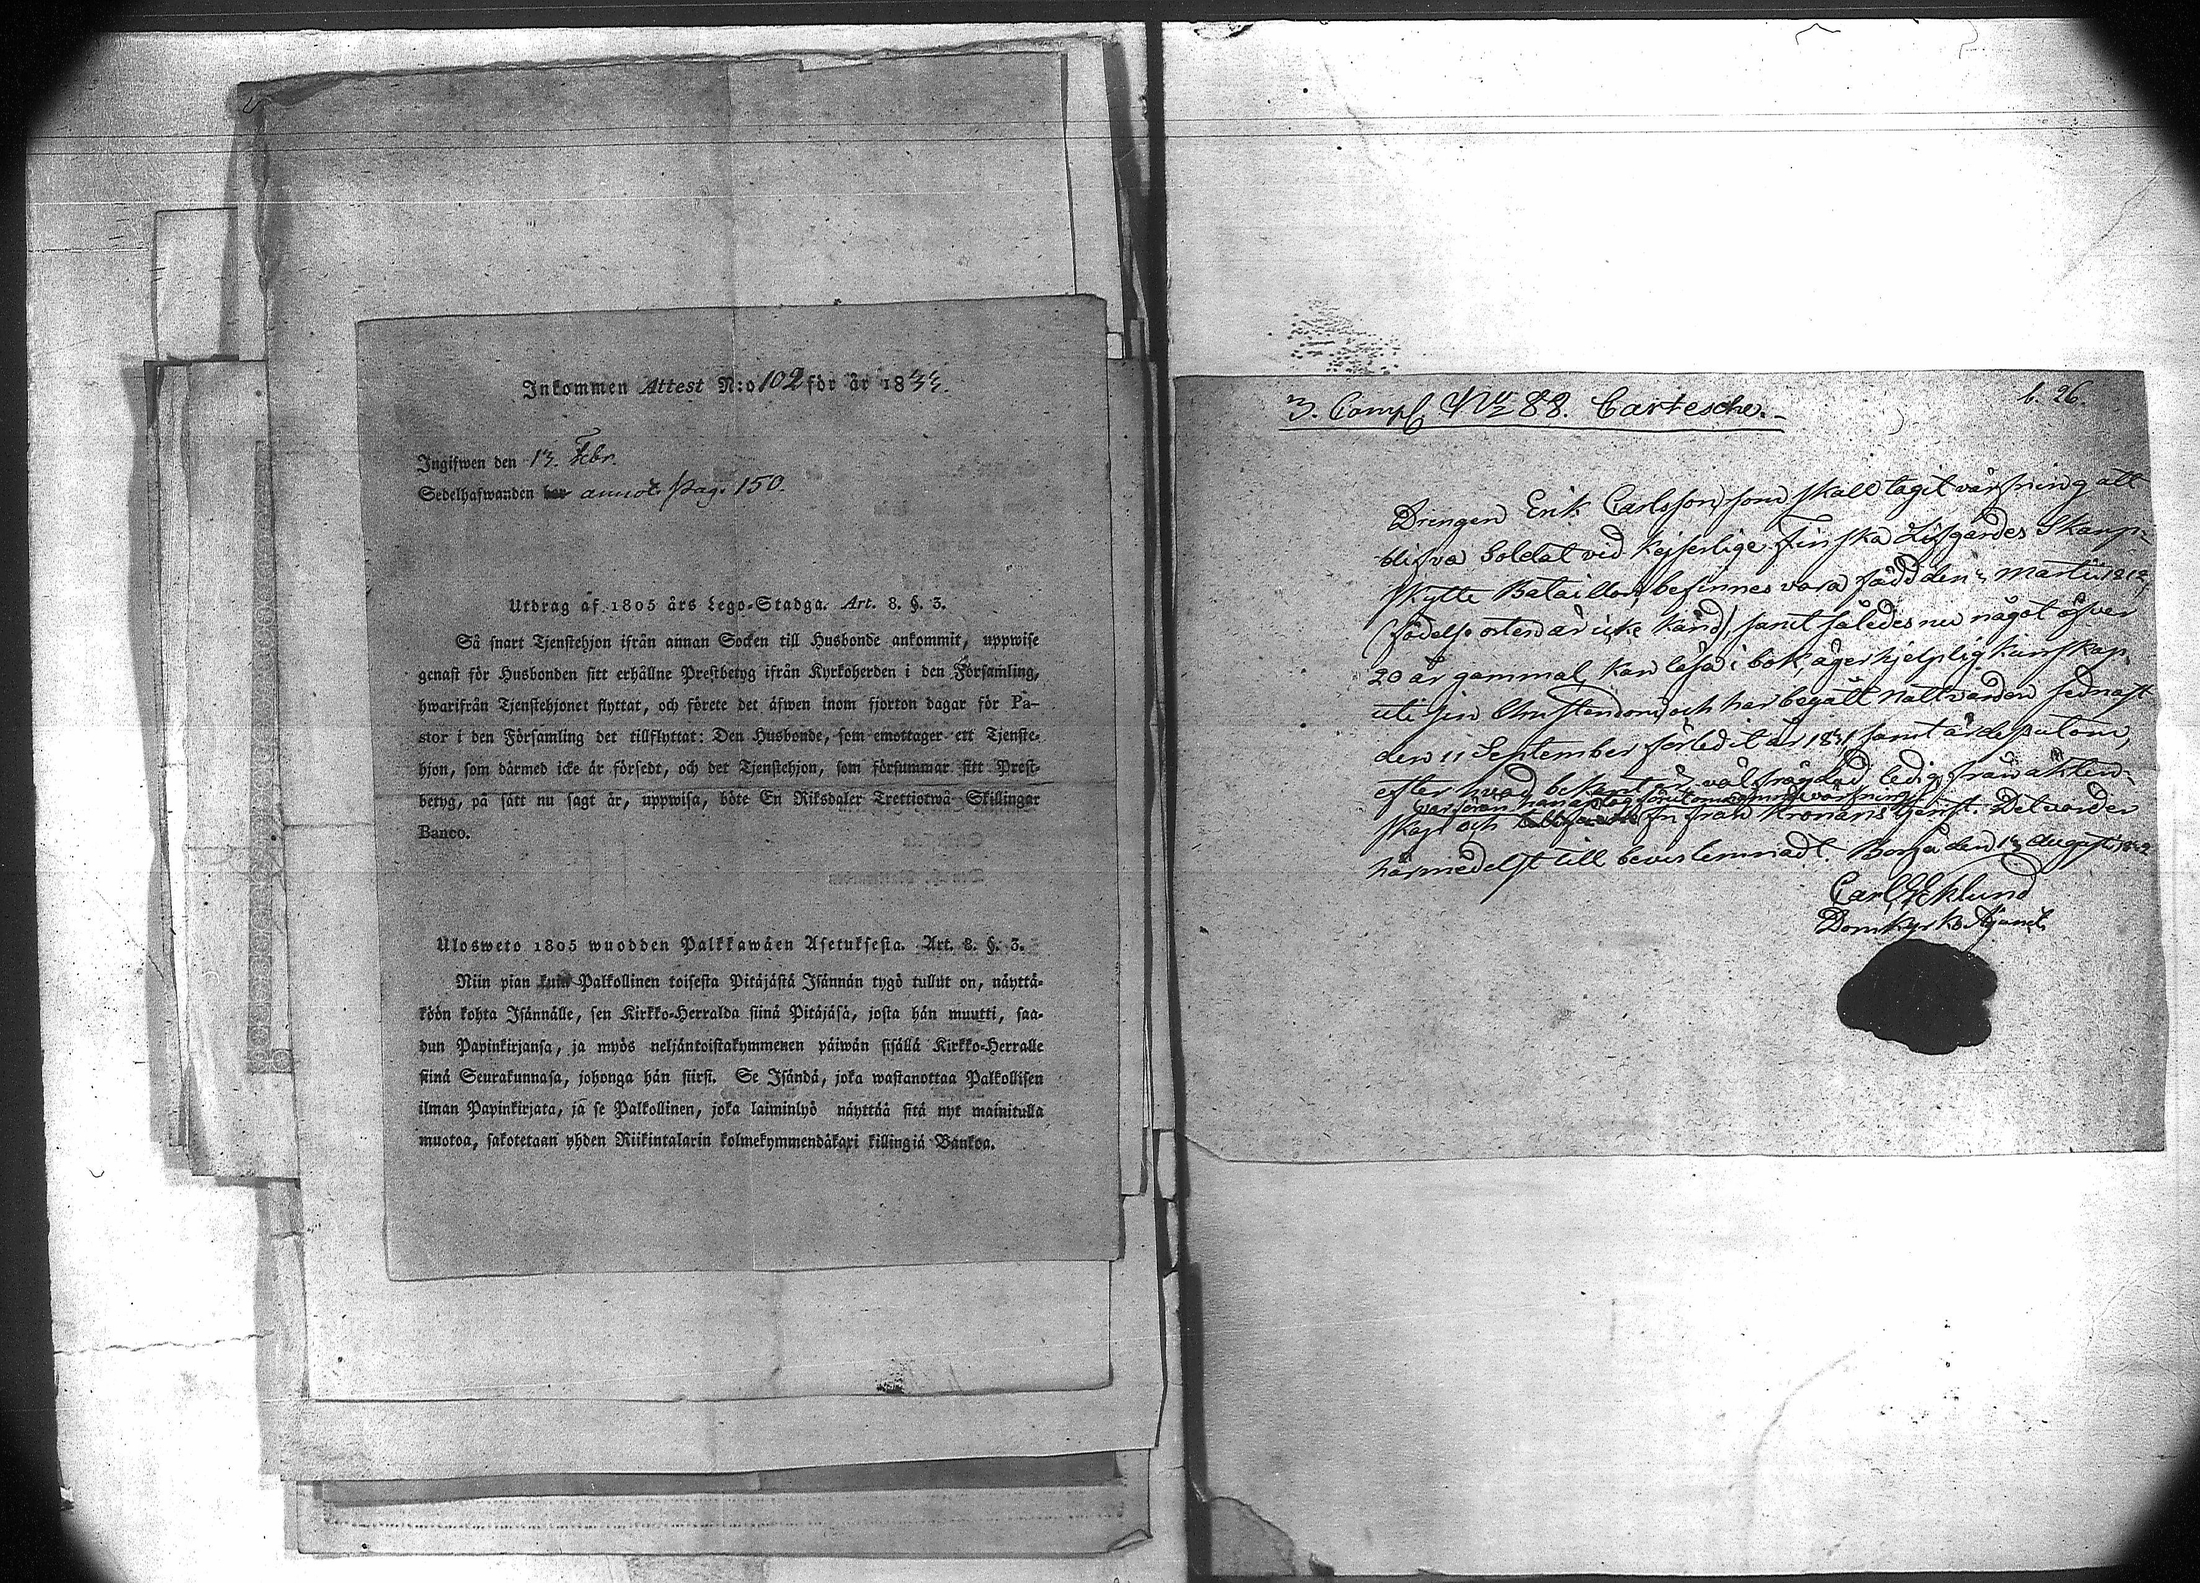 Inkommen Attest N:o 102 för år 1833.
Ingifwen den 13. Febr.
Sedelhafwanden annot. pag. 150.
Utdrag af 1805 års Lego-Stadga. Art. 8. §. 3.
Så snart Tjenstehjon ifrån annan Socken till Husbonde ankommit, uppwise
genast för Husbonden sitt erhållne Prestbetyg ifrån Kyrkoherden i den Församling,
hwarifrån Tjenstehjonet flyttat, och förete det äfwen inom fjorton dagar för Pa-
stor i den Församling det tillflyttat: Den Husbonde, som emottager ett Tjenste-
hjon, som därmed icke är försedt, och det Tjenstehjon, som försummar sitt Prest-
betyg, på sätt nu sagt är, uppwisa, böte En Riksdaler Trettiotwå Skillingar
Banco.
Ulosweto 1805 wuodden Palkkawäen Asetuksesta. Art. 8. §. 3.
Niin pian kuin Palkollinen toisesta Pitäjästä Isännän tygö tullut on, näyttä-
köön kohta Isännälle, sen Kirkko-Herralda siinä Pitäjäsä, josta hän muutti, saa-
dun Papinkirjansa, ja myös neljäntoistakymmenen päiwän sisällä Kirkko-Herralle
siinä Seurakunnasa, johonga hän siirsi. Se Isändä, joka wastanottaa Palkollisen
ilman Papinkirjata, ja se Palkollinen, joka laiminlyö näyttää sitä nyt mainitulla
muotoa, sakotetaan yhden Riikintalarin kolmekymmendäkaxi killingiä Bankoa.
3. Comp. No 88. Cartesche.
b. 26.
Drengen Erik Carlsson, som skall tagit värfning att
blifva Soldat vid Kejserlige Finska Lifgardes Skarp-
skytte Bataillon, befinnes vara född den Martii 1812
(födelse orten är icke känd), samt således nu något öfver
20 år gammal, kan läsa i bok, äger hjelplig kunskap
uti sin Christendom och har begått Nattvarden sednast
den 11 September förledit år 1831, samt är dessutom,
efter hvad bekant är välfrägdad, ledig från äkten-
varförän han antog förutomnämnd värfning
skap och fri från Kronans tjenst. Det varder
härmedelst till bevis lemnadt. Borgå den 13 Augusti 1832
Carl Eklund
Domkyrko Adjunct.